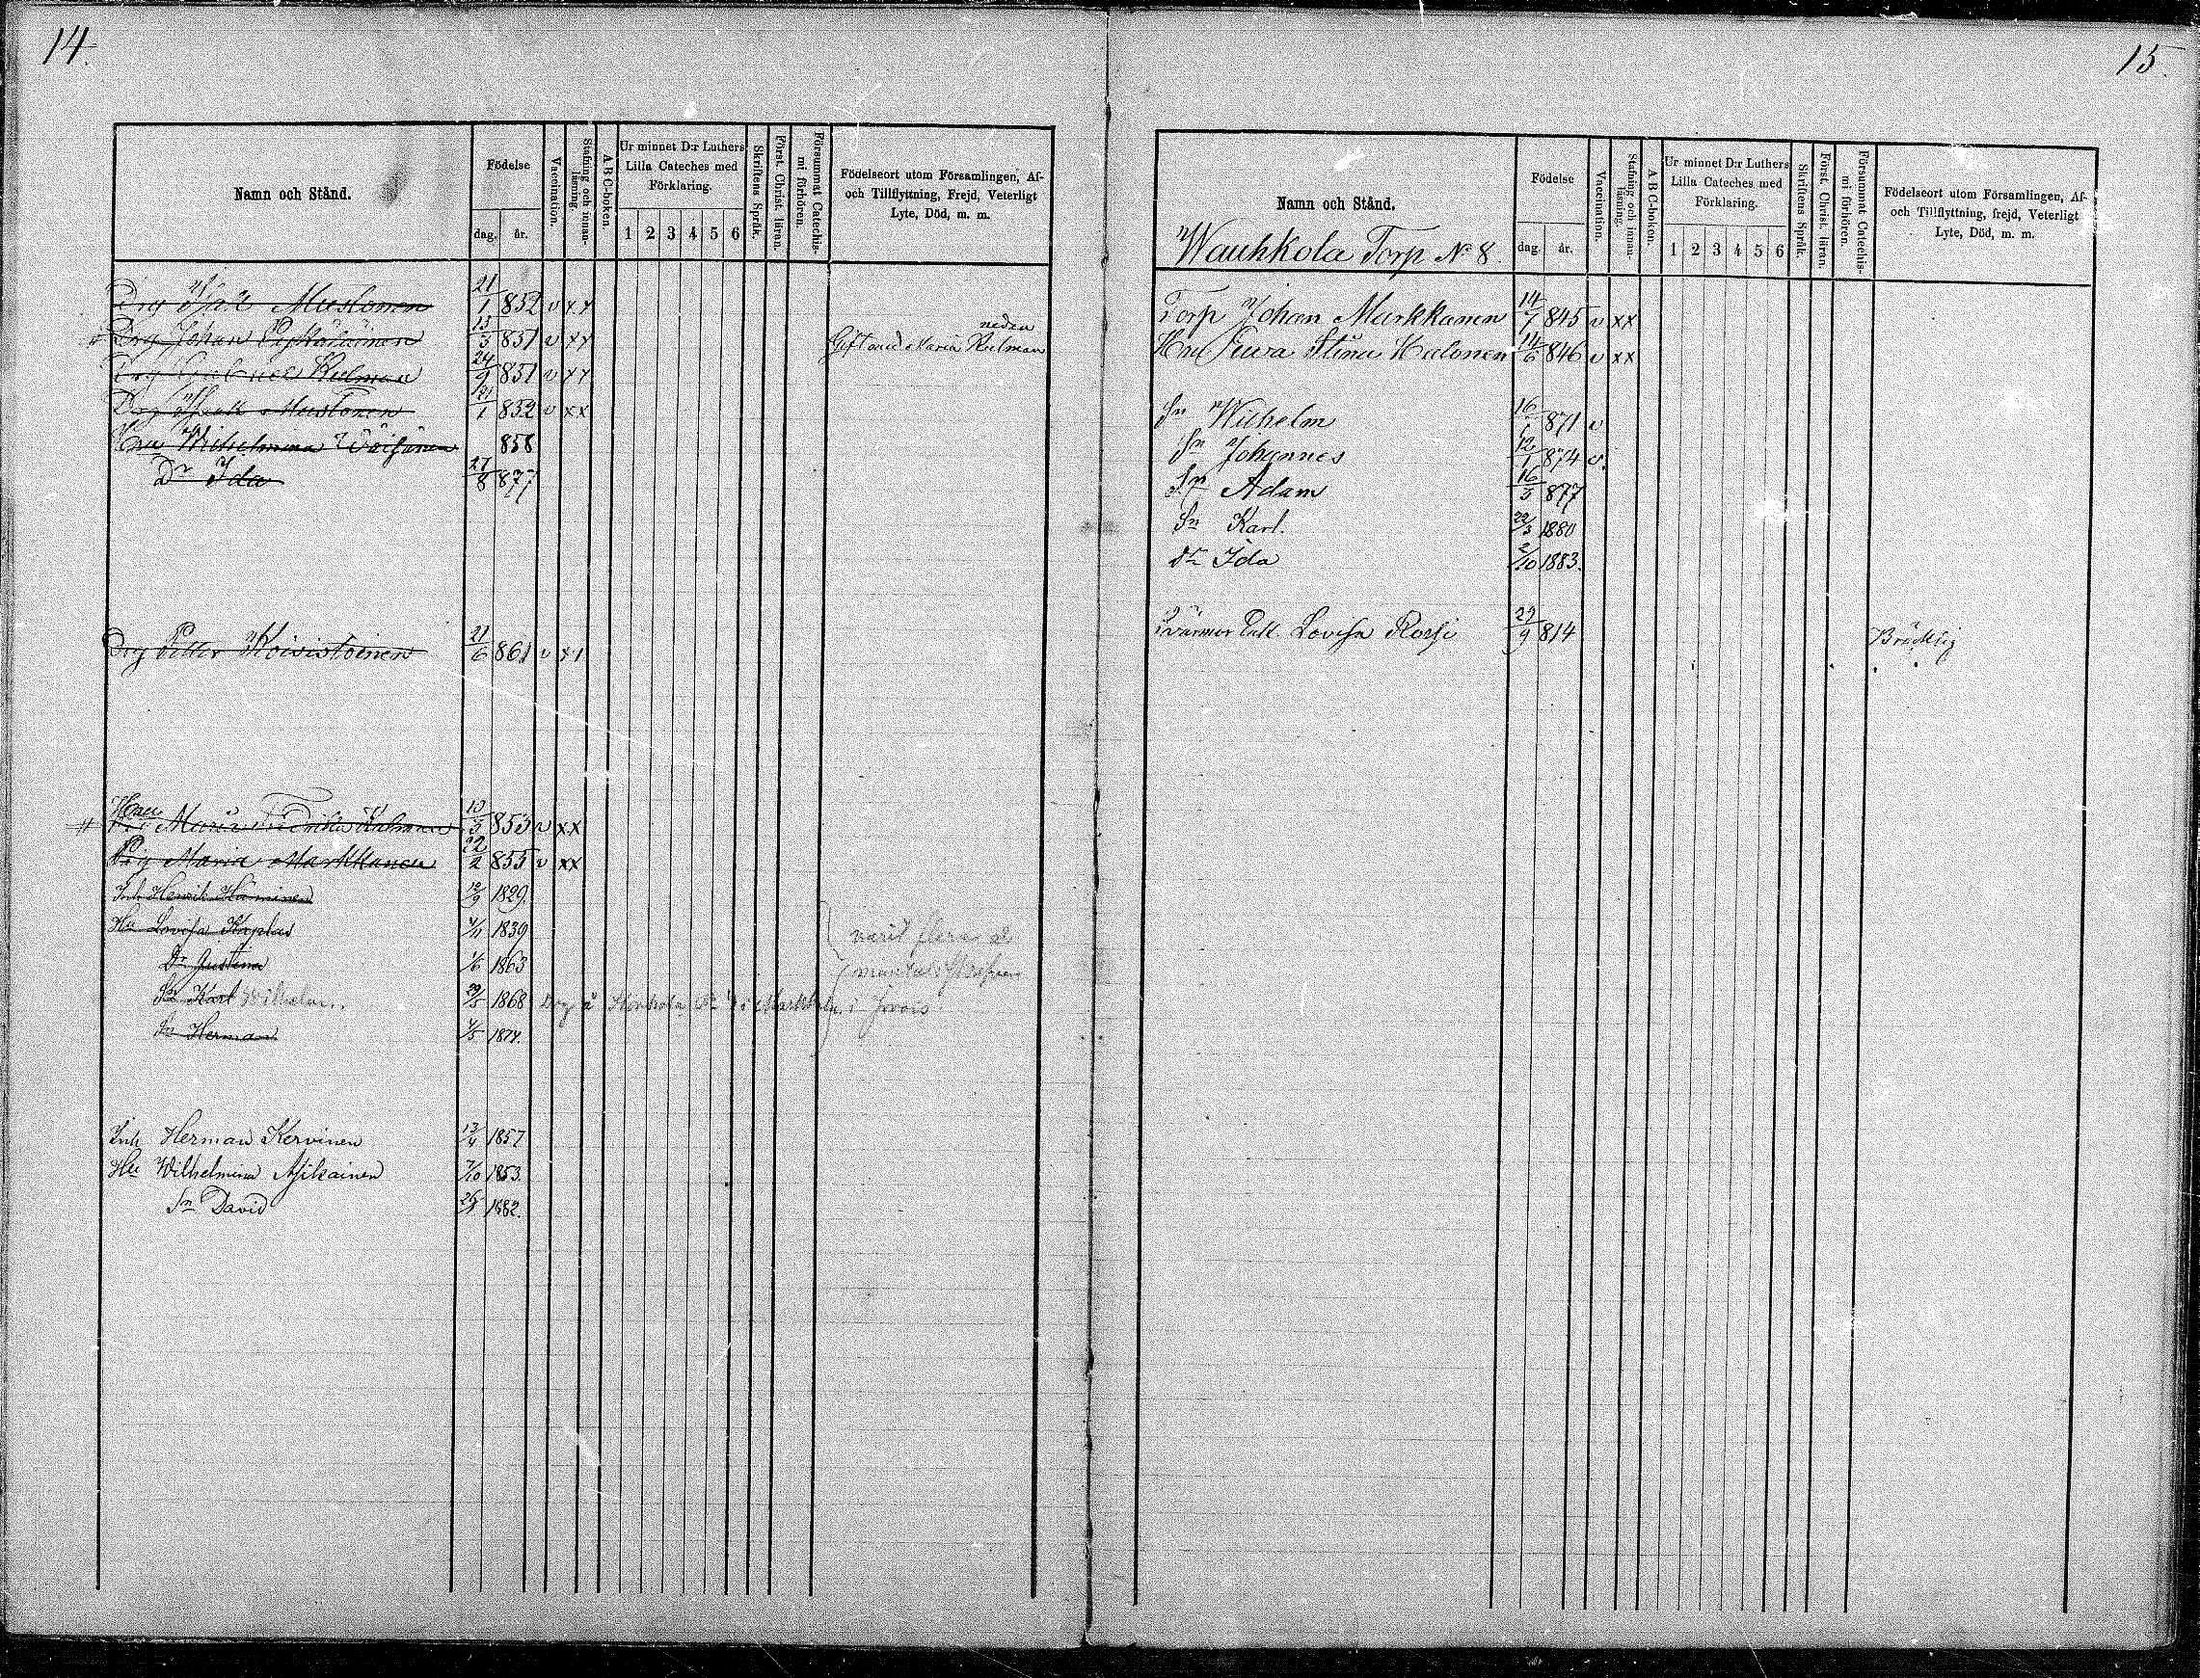 14.
Namn och Stånd.
Födelse
dag. år.
Vaccination.
Stafning och innan-läsning.
A B C-boken.
Ur minnet D:r Luthers
Lilla Cateches med
Förklaring.
1 2 3 4 5 6
Skriftens Språk.
Först. Christ. läran.
Försummat Catechis-
mi förhören.
Födelseort utom Församlingen, Af-
och Tillflyttning, Frejd, Veterligt
Lyte, Död, m. m.
Drg Mustonen 21/1 852 v xx
neden
Drg Johan 13/3 851 v xx Gift med Maria Kulman
Drg Kulman 24/9 851 v xx
Drg Mustonen 21/1 852 v xx
Hu Wilhelmina Väisänen 858
Dr Ida 27/8 877
Drg Petter Koivistoinen 21/6 861 v x
Hu
Maria Fredrika Kulman 10/3 853 v xx
Pig Maria Markkanen 22/2 855 v xx
Inh Henrik 1829.
Hu Lovisa 1839
Dr Gustava 1/6 1863
varit flera år
Sn Karl Wilhelm 29/5 1868
Sn Herman 1874.
Inh Herman Kervinen 13/4 1857
Hu Wilhelmina Asikainen 7/10 1853.
Sn David 1882.
15.
Namn och Stånd.
Wauhkola Torp No 8.
Födelse
dag. år.
Vaccination.
Stafning och innan-läsning.
A B C-boken.
Ur minnet D:r Luthers
Lilla Cateches med
Förklaring.
1 2 3 4 5 6
Skriftens Språk.
Först. Christ. läran.
Försummat Catechis-
mi förhören.
Födelseort utom Församlingen, Af-
och Tillflyttning, frejd, Veterligt
Lyte, Död, m. m.
Torp Johan Markkanen 14/7 845 v xx
Hu Ewa Stina Halonen 14/6 846 v xx
Sn Wilhelm 871 v
Sn Johannes 12/1 874 v.
Sn Adam 16/5 877
Sn Karl. 22/3 1880
dr Ida 2/10 1883.
Svärmor Enk. Lovisa Rossi 29/9 814 Bräcklig